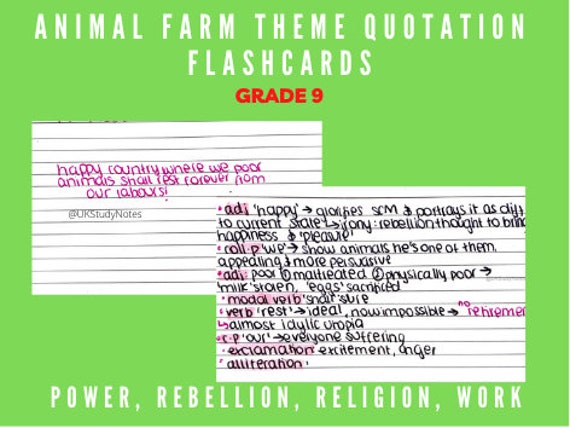 ANIMAL FARM THEME QUOTATION
FLASHCARDS
GRADE 9
happy country where we poor
animals shall rest forever from
our labours!
@UKStudyNotes
• adj 'happy' → glorifies SCM & portrays it as diff
to current state → irony: rebellion thought to bring
happiness & 'pleasure'
• coll.p 'we' → show animals he's one of them,
appealing & more persuasive
• adj: poor ① maltreated ② physically poor →
'milk' stolen, 'eggs' sacrificed
• modal verb 'shall' sure
• verb 'rest' → ideal, now impossible → no retiremen
↳ almost idylic utopia
• c.p 'our' → everyone suffering
• exclamation: excitement, anger
• alliteration:
POWER, REBELLION, RELIGION, WORK